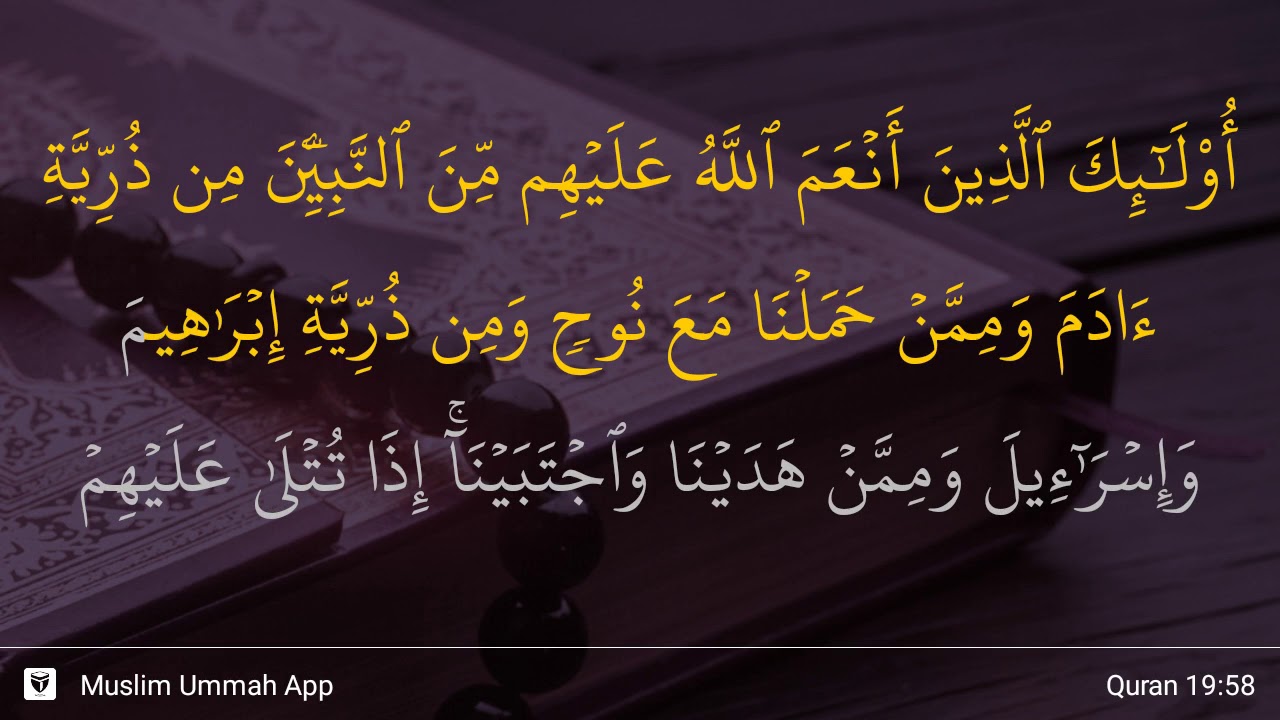 أُو۟لَـٰٓئِكَ ٱلَّذِينَ أَنْعَمَ ٱللَّهُ عَلَيْهِم مِّنَ ٱلنَّبِيِّـۧنَ مِن ذُرِّيَّةِ
ءَادَمَ وَمِمَّنْ حَمَلْنَا مَعَ نُوحٍ وَمِن ذُرِّيَّةِ إِبْرَٰهِيمَ
وَإِسْرَٰٓءِيلَ وَمِمَّنْ هَدَيْنَا وَٱجْتَبَيْنَآ ۚ إِذَا تُتْلَىٰ عَلَيْهِمْ
Muslim Ummah App
Quran 19:58